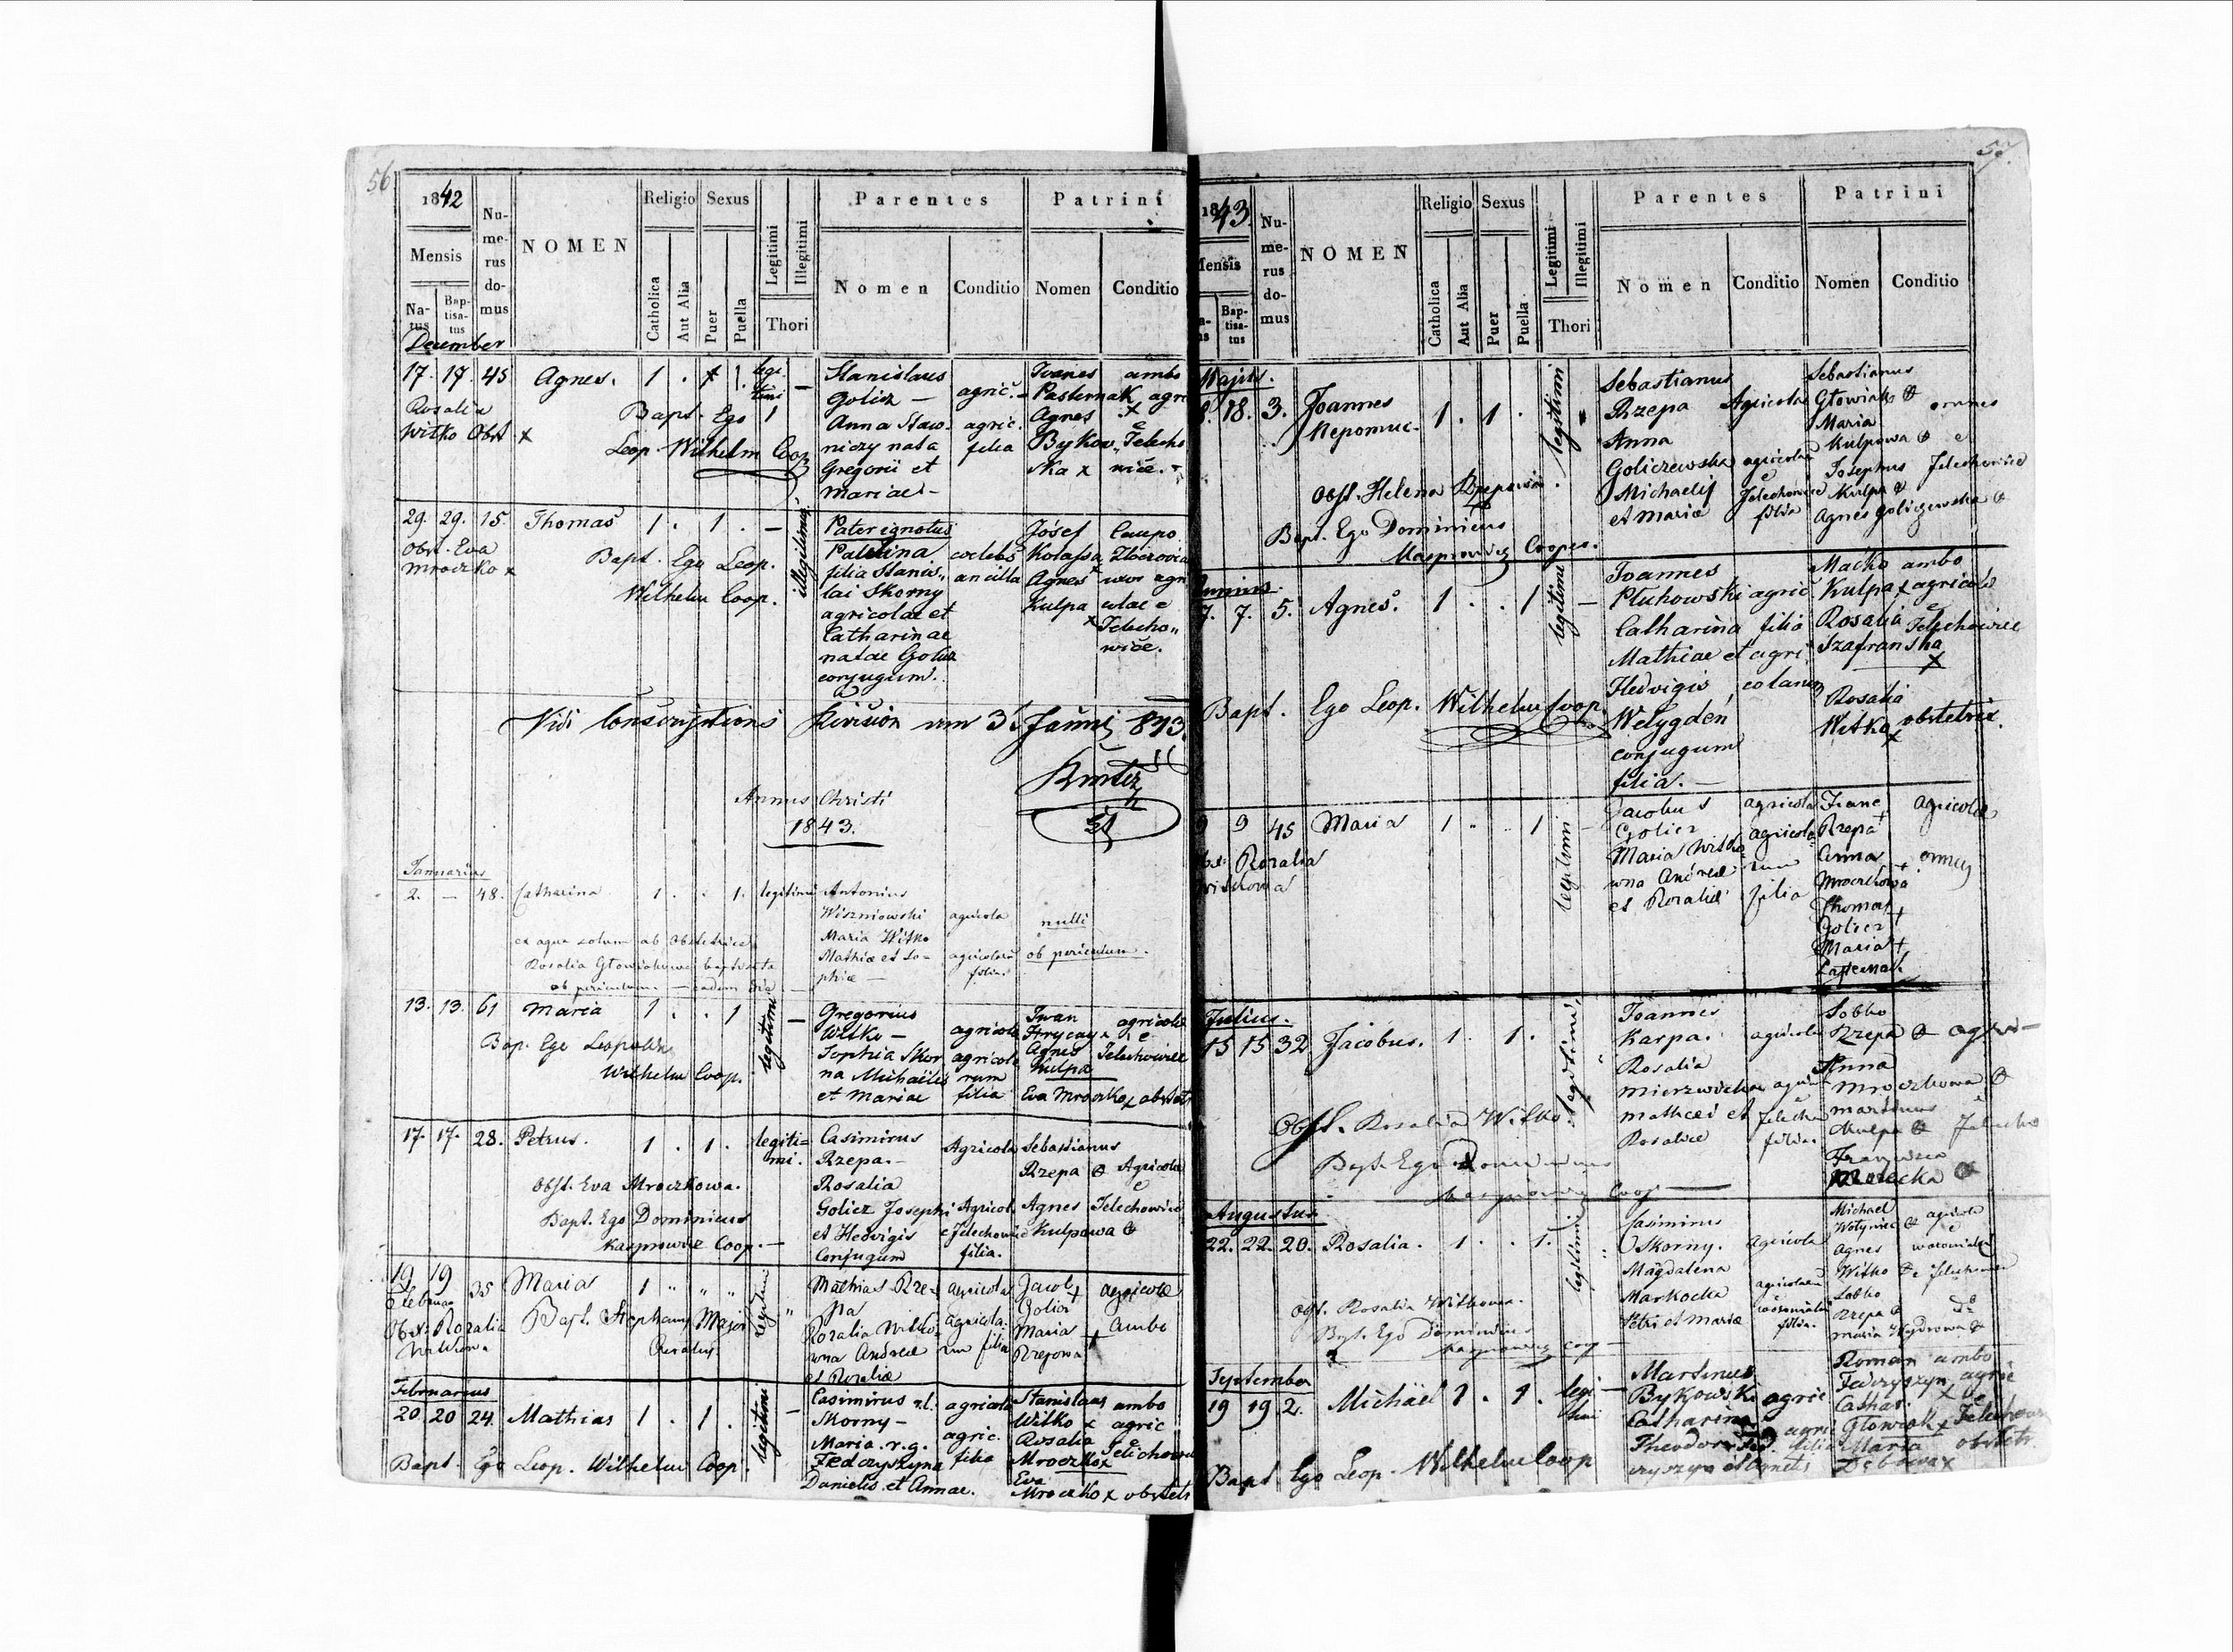 56
1842
Nu-
me-
rus
do-
mus
NOMEN
Religio
Sexus
Legitimi
Illegitimi
Thori
Parentes
Patrini
Mensis
Na-
tus
Bap-
tisa-
tus
Catholica
Aut Alia
Puer
Puella
Nomen
Conditio
Nomen
Conditio
December
17. 17. 45 Agnes. 1 . 1. legi
timi —
Rosalia
Witko Obst x
Bapt. Ego
Leop. Wilhelm Coop
Stanislaus
Golicz — agric.
Anna Staw agric.
niczy nata filia
Gregorii et
Mariae —
Joanes ambo
Pasternak agri
Agnes x
Bykow„ Jelecho
ska x
29. 29. 15. Thomas 1 . 1 . — illegitimi
Obst. Eva
Mroczko x
Bapt. Ego Leop.
Wilhelm Coop.
Pater ignotus
Paulina coelebs
filia Stanis„ ancilla
lai Skorny
agricolae et
Catharinae
natae Golicz
conjugum.
Józef
Kolassa
Agnes uxor agri
Kulpa colae e
x Jelecho„
Vidi Conscriptions Revision am 3t Juni 843.
Annus Christi
1843.
Januarius
2. — 48. Catharina 1 . . 1. legitimi
ex aqua solum ab Obstetrice
Rosalia Głowiakowa baptisata
ob periculum — eadem die
Antonius
Wiszniowski agricola
Maria Witko
Mathiae et So- agricolarum
phiae — filia.
nulli
ob periculum.
13. 13. 61 Maria 1 . . 1 legitimi —
Bap. Ego Leopold
Wilhelm Coop.
Gregorius
Witko — agricola
Sophia Skor agricola
na Michaelis rum
et Mariae filia
Iwan
Hrycay x agricolae
Agnes e Jelechowice
Kulpa
Eva Mroczko x obstetr
17. 17. 28. Petrus. 1 . 1 . legiti=
mi.
Obst. Eva Mroczkowa.
Bapt. Ego Dominicus
Kasprowicz Coop. —
Casimirus Agricola
Rzepa. —
Rosalia
Golicz Josephi Agricol.
et Hedvigis e Jelechowice
Conjugum filia.
Sebastianus
Rzepa Agricola
Agnes Jelechowice
Kulpowa
19 19 35 Maria 1 „ „ „ legitimi „
Februar
Obst: Rosalia
Bapt. Stephan Major
Curatus.
Mathias Rze- agricola
pa
Rosalia Witko agricola
wna Andreae rum filia
et Rosaliae
Jacob + agricolae
Golicz
Maria + Ambo
Rzepowa
Februarius
20. 20 24. Mathias 1 . 1 . legitimi —
Bapt. Ego Leop. Wilhelm Coop.
Casimirus r.l. agricola
Skorny —
Maria r.g. agric.
Fedczyszyna filia
Danielis et Annae.
Stanislaus ambo
Witko x agric
Rosalia
Mroczko x
Eva
Mroczko x obstetr
57.
1843.
Mensis
Bap-
tisa-
tus
Nu-
me-
rus
do-
mus
NOMEN
Religio
Sexus
Legitimi
Illegitimi
Thori
Parentes
Patrini
Catholica
Aut Alia
Puer
Puella
Nomen
Conditio
Nomen
Conditio
Majus.
18. 3. Joannes 1 . 1 . legitimi
Nepomuc.
Obst. Helena Rzepowa.
Bapt. Ego Dominicus
Kasprowicz Cooper.
Sebastianus
Rzepa Agricola
Anna
Goliczewska agricolae
Michaelis e Jelechowice
et Mariae filia
Sebastianus
Głowiak omnes
Maria
Kulpowa e
Josephus Jelechowice
Kulpa
Agnes Goliczewska
Junius
7. 7. 5. Agnes. 1 . . 1 legitimi —
Bapt. Ego Leop. Wilhelm Coop.
Joannes
Ptuhowski agric
Catharina filia
Mathiae et agri
Hedvigis colarum
Welygden
conjugum
filia. —
Maćko ambo
Kulpa x agricolae
Rosalia e Jelechowice
Szafranska
x
Rosalia
Witko x obstetrix.
9 9 45 Maria 1 „ „ 1 legitimi
Obst: Rosalia
Witkowa
Jacobus agricola
Golicz agricola
Maria Witko rum
wna Andreae filia
et Rosaliae
Rzepa + agricolae
Anna omnes
Mroczkowa +
Thomas +
Golicz
Maria +
Pasternak
Julius.
15 15 32 Jacobus. 1 . 1 . legitimi
Obst. Rosalia Witko.
Bapt. Ego Dominicus
Kasprowicz Coop —
Joannes
Karpa. agricola
Rosalia
Mierzwicka
Mathaei et
Rosaliae filia.
Sobko
Rzepa
Anna
Mroczkowa
Martinus
Kulpa
Augustus
22. 22. 20. Rosalia. 1 . . 1. legitimi
Obst. Rosalia Witkowa.
Bapt. Ego Dominicus
Kasprowicz coop —
Casimirus
Skorny. agricola
Magdalena
Markocka
Petri et Mariae filia.
Michael
Wołyniec agricola
Agnes
Witko
Sobko
Rzepa
Maria
September
19 19 2. Michäel 1 . 1 . legi —
timi
Bapt Ego Leop. Wilhelm Coop
Martinus
Bykowski agric
Catharina agri
Theodori Fed filia
czyszyn et Agnetis
Roman ambo
Fedczyszyn agric
Cathar.
Głowiak x
Maria obstetr.
Dębowa x